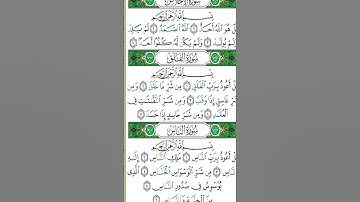 سُورَةُ الإِخْلَاصِ
بِسْمِ اللَّهِ الرَّحْمَٰنِ الرَّحِيمِ
هُوَ اللَّهُ أَحَدٌ ۝١ اللَّهُ الصَّمَدُ ۝٢ لَمْ يَلِدْ
وَلَمْ يُولَدْ ۝٣ وَلَمْ يَكُن لَّهُ كُفُوًا أَحَدٌ ۝٤
سُورَةُ الفَلَقِ
بِسْمِ اللَّهِ الرَّحْمَٰنِ الرَّحِيمِ
أَعُوذُ بِرَبِّ الْفَلَقِ ۝١ مِن شَرِّ مَا خَلَقَ ۝٢ وَمِن
غَاسِقٍ إِذَا وَقَبَ ۝٣ وَمِن شَرِّ النَّفَّاثَاتِ فِي
الْعُقَدِ ۝٤ وَمِن شَرِّ حَاسِدٍ إِذَا حَسَدَ ۝٥
سُورَةُ النَّاسِ
بِسْمِ اللَّهِ الرَّحْمَٰنِ الرَّحِيمِ
أَعُوذُ بِرَبِّ النَّاسِ ۝١ مَلِكِ النَّاسِ ۝٢ إِلَٰهِ
النَّاسِ ۝٣ مِن شَرِّ الْوَسْوَاسِ الْخَنَّاسِ ۝٤
يُوَسْوِسُ فِي صُدُورِ النَّاسِ ۝٥
مِنَ الْجِنَّةِ وَالنَّاسِ ۝٦